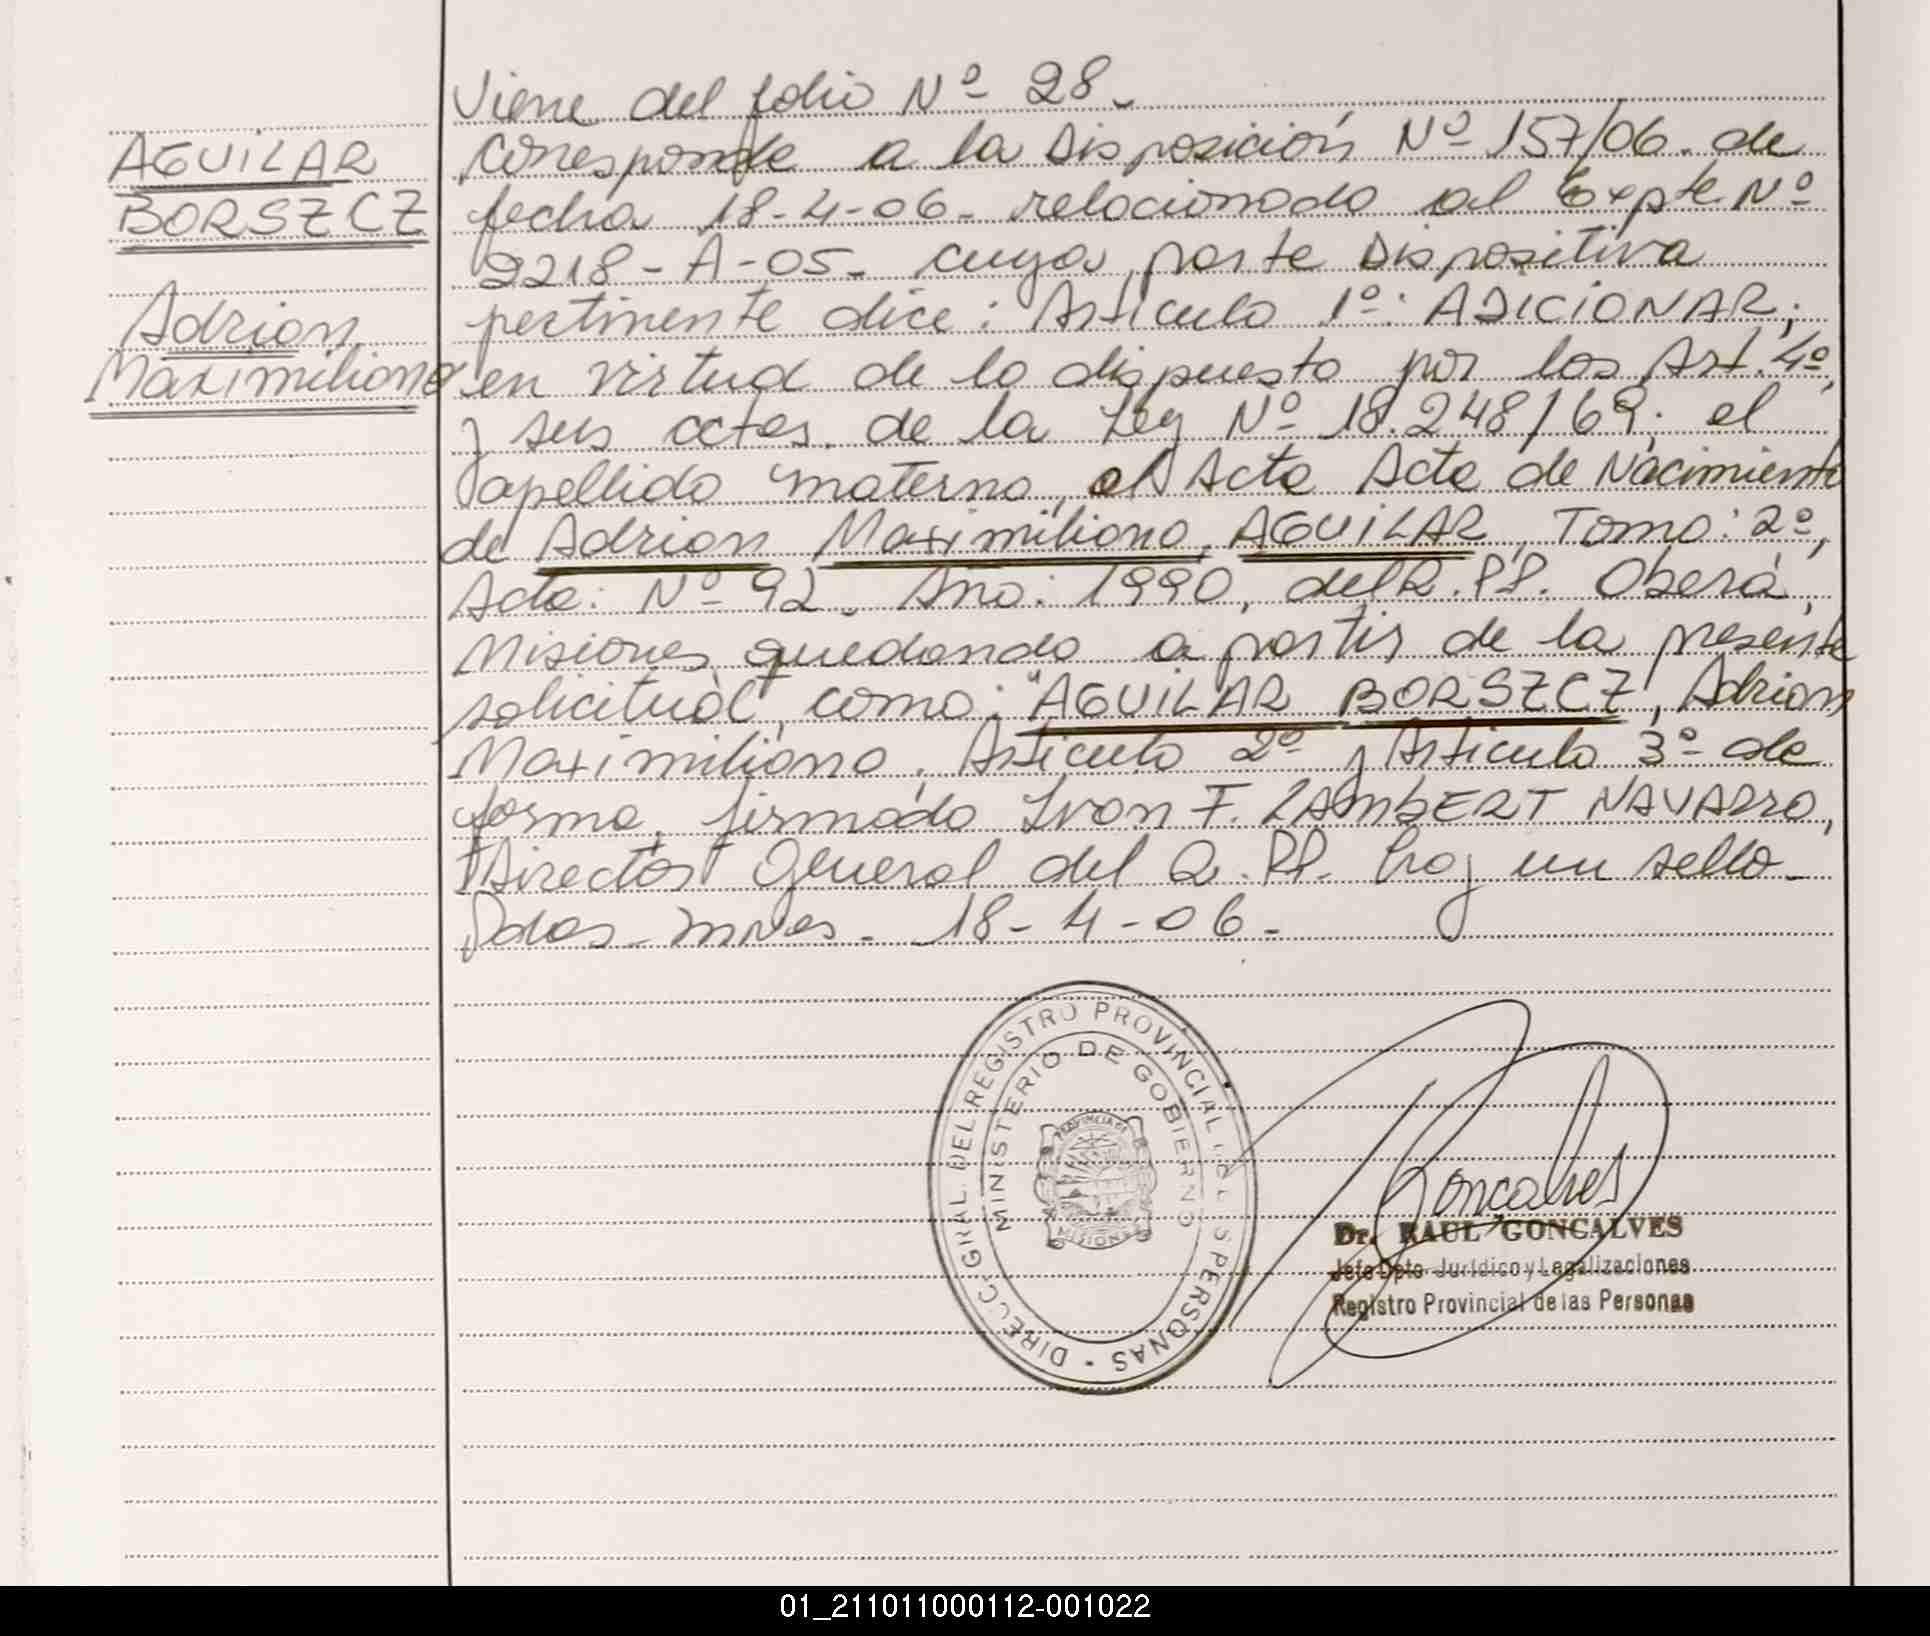 AGUILAR
BORSZCZ
Adrian
Maximiliano
Viene del folio Nº 28.
Corresponde a la Disposición Nº 157/06. de
fecha 18-4-06. relacionado al Expte Nº
2218-A-05. cuya parte Dispositiva
pertinente dice: Artículo 1º: ADICIONAR;
en virtud de lo dispuesto por los Art. 4º,
y sus cctes. de la Ley Nº 18.248/69; el
apellido materno, al Acta Acta de Nacimiento
de Adrian Maximiliano, AGUILAR, Tomo: 2º,
Acta: Nº 92. Ano: 1990, del R.PP. Oberá,
Misiones quedando a partir de la presente
solicitud, como: "AGUILAR BORSZCZ, Adrian
Maximiliano. Articulo 2º y Articulo 3º de
forma, firmado Ivan F. LAMBERT NAVARRO,
Director General del R.PP. hay un sello-
Pdas-Mnes. 18-4-06.
DIRECC. GRAL. DEL REGISTRO PROVINCIAL DE LAS PERSONAS
MINISTERIO DE GOBIERNO
PROVINCIA DE
MISIONES
Goncalves
Dr. RAUL GONCALVES
Jefe Dpto Jurídico y Legalizaciones
Registro Provincial de las Personas
01_211011000112-001022